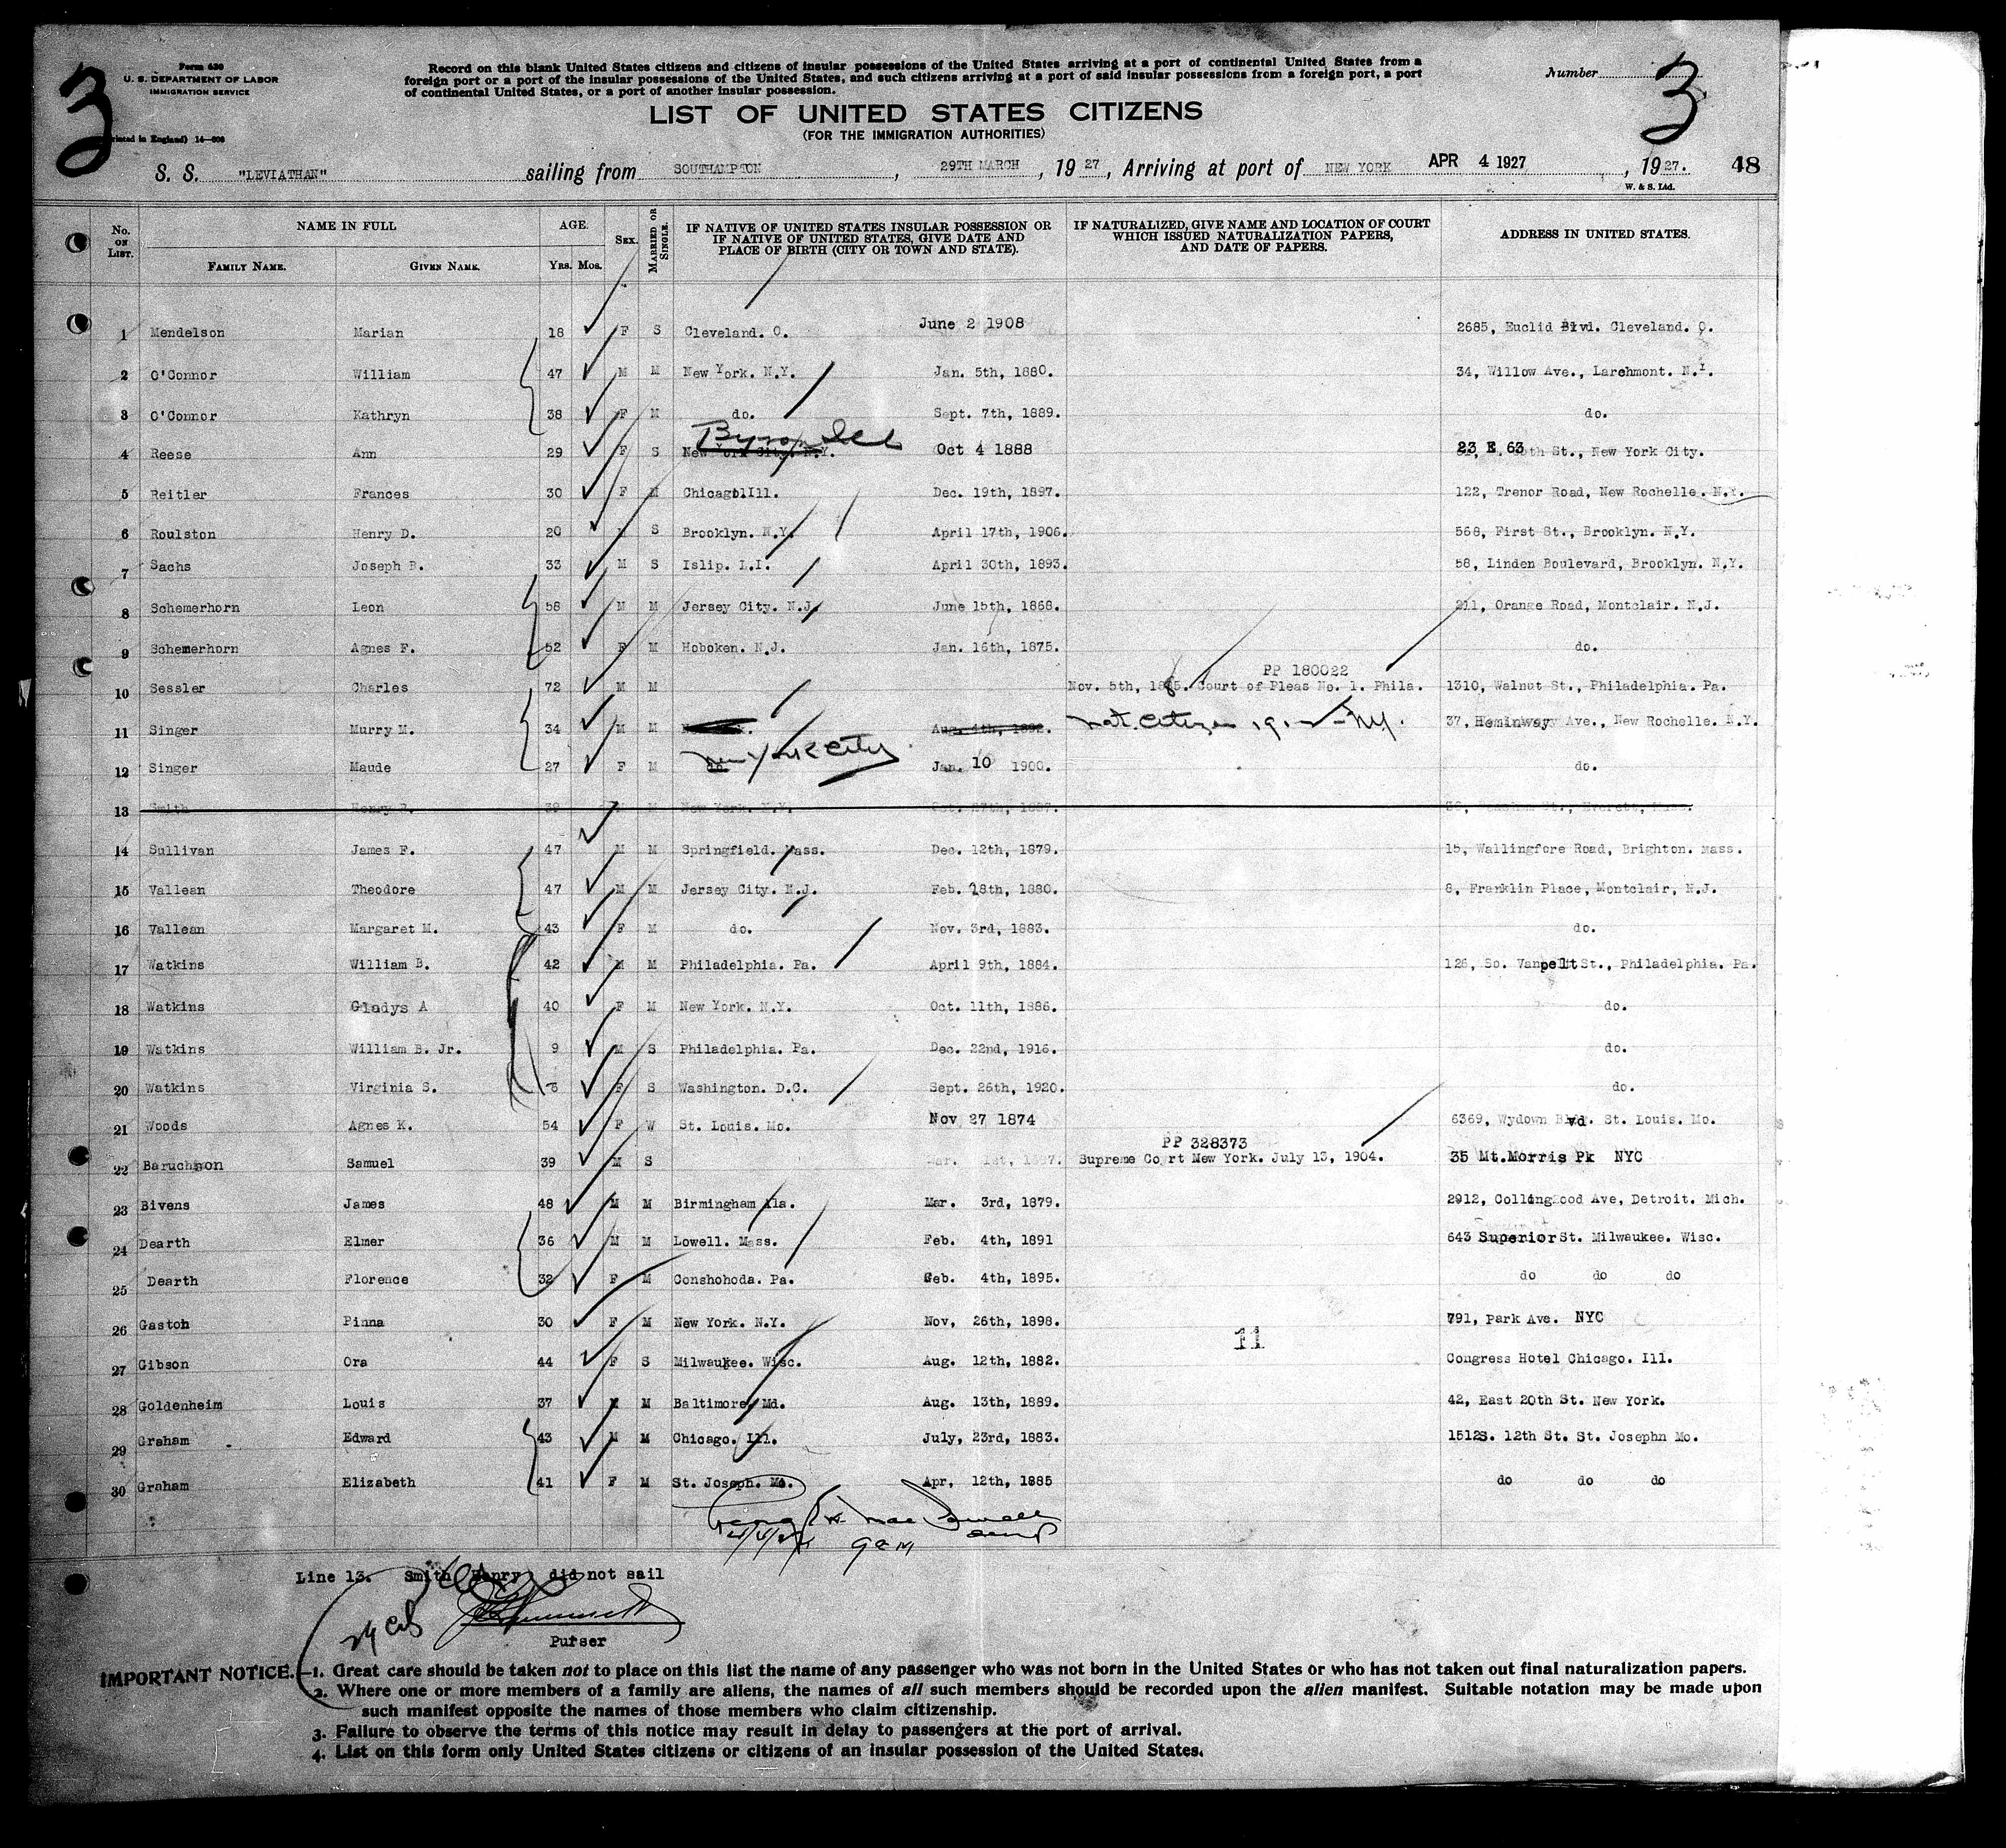 3
Form 630
U. S. DEPARTMENT OF LABOR
IMMIGRATION SERVICE
(Printed in England) 14—606
Record on this blank United States citizens and citizens of insular possessions of the United States arriving at a port of continental United States from a
foreign port or a port of the insular possessions of the United States, and such citizens arriving at a port of said insular possessions from a foreign port, a port
of continental United States, or a port of another insular possession.
Number
3
LIST OF UNITED STATES CITIZENS
(FOR THE IMMIGRATION AUTHORITIES)
S. S. "LEVIATHAN" sailing from SOUTHAMPTON, 29TH MARCH, 1927, Arriving at port of NEW YORK APR 4 1927, 1927. 48
W. & S. Ltd.
No. ON LIST. NAME IN FULL FAMILY NAME. GIVEN NAME. AGE. YRS. MOS. SEX. MARRIED OR SINGLE. IF NATIVE OF UNITED STATES INSULAR POSSESSION OR IF NATIVE OF UNITED STATES, GIVE DATE AND PLACE OF BIRTH (CITY OR TOWN AND STATE). IF NATURALIZED, GIVE NAME AND LOCATION OF COURT WHICH ISSUED NATURALIZATION PAPERS, AND DATE OF PAPERS. ADDRESS IN UNITED STATES.
1 Mendelson Marian 18 F S Cleveland. O. June 2 1908 2685, Euclid Blvd. Cleveland. O.
2 O'Connor William 47 M M New York. N.Y. Jan. 5th, 1880. 34, Willow Ave., Larchmont. N.Y.
3 O'Connor Kathryn 38 F M do. Sept. 7th, 1889. do.
Byron Ill
4 Reese Ann 29 F S New York City. N.Y. Oct 4 1888 23 E 63 th St., New York City.
5 Reitler Frances 30 F M Chicago Ill. Dec. 19th, 1897. 122, Trenor Road, New Rochelle. N.Y.
6 Roulston Henry D. 20 M S Brooklyn. N.Y. April 17th, 1906. 568, First St., Brooklyn. N.Y.
7 Sachs Joseph B. 33 M S Islip. L.I. April 30th, 1893. 58, Linden Boulevard, Brooklyn. N.Y.
8 Schemerhorn Leon 58 M M Jersey City. N.J. June 15th, 1868. 211, Orange Road, Montclair. N.J.
9 Schemerhorn Agnes F. 52 F M Hoboken. N.J. Jan. 16th, 1875. do.
PP 180022
10 Sessler Charles 72 M M Nov. 5th, 1885. Court of Pleas No. 1. Phila. 1310, Walnut St., Philadelphia. Pa.
11 Singer Murry M. 34 M M Aug. 4th, nat. citizen 1912 - NY. 37, Heminway Ave., New Rochelle. N.Y.
New York City
12 Singer Maude 27 F M do. Jan. 10 1900. do.
13 Smith Henry 39 M New York. N.Y. Everett, Mass.
14 Sullivan James F. 47 M M Springfield. Mass. Dec. 12th, 1879. 15, Wallingfore Road, Brighton. Mass.
15 Vallean Theodore 47 M M Jersey City. N.J. Feb. 18th, 1880. 8, Franklin Place, Montclair, N.J.
16 Vallean Margaret M. 43 F M do. Nov. 3rd, 1883. do.
17 Watkins William B. 42 M M Philadelphia. Pa. April 9th, 1884. 126, So. Vanpelt St., Philadelphia. Pa.
18 Watkins Gladys A 40 F M New York. N.Y. Oct. 11th, 1886. do.
19 Watkins William B. Jr. 9 M S Philadelphia. Pa. Dec. 22nd, 1916. do.
20 Watkins Virginia S. 6 F S Washington. D.C. Sept. 26th, 1920. do.
21 Woods Agnes K. 54 F W St. Louis. Mo. Nov 27 1874 6369, Wydown Blvd. St. Louis. Mo.
PP 328373
22 Baruchson Samuel 39 M S Mar. 1st, Supreme Court New York. July 13, 1904. 35 Mt.Morris Pk NYC
23 Bivens James 48 M M Birmingham Ala. Mar. 3rd, 1879. 2912, Collingood Ave, Detroit. Mich.
24 Dearth Elmer 36 M M Lowell. Mass. Feb. 4th, 1891 643 Superior St. Milwaukee. Wisc.
25 Dearth Florence 32 F M Conshohoda. Pa. Feb. 4th, 1895. do do do
26 Gaston Pinna 30 F M New York. N.Y. Nov, 26th, 1898. 791, Park Ave. NYC
11
27 Gibson Ora 44 F S Milwaukee. Wisc. Aug. 12th, 1882. Congress Hotel Chicago. Ill.
28 Goldenheim Louis 37 M M Baltimore, Md. Aug. 13th, 1889. 42, East 20th St. New York.
29 Graham Edward 43 M M Chicago. Ill. July, 23rd, 1883. 1512S. 12th St. St. Josephn Mo.
30 Graham Elizabeth 41 F M St. Joseph. Mo. Apr, 12th, 1885 do do do
Line 13. Smith Henry did not sail
Purser
IMPORTANT NOTICE.—1. Great care should be taken not to place on this list the name of any passenger who was not born in the United States or who has not taken out final naturalization papers.
2. Where one or more members of a family are aliens, the names of all such members should be recorded upon the alien manifest. Suitable notation may be made upon
such manifest opposite the names of those members who claim citizenship.
3. Failure to observe the terms of this notice may result in delay to passengers at the port of arrival.
4. List on this form only United States citizens or citizens of an insular possession of the United States.